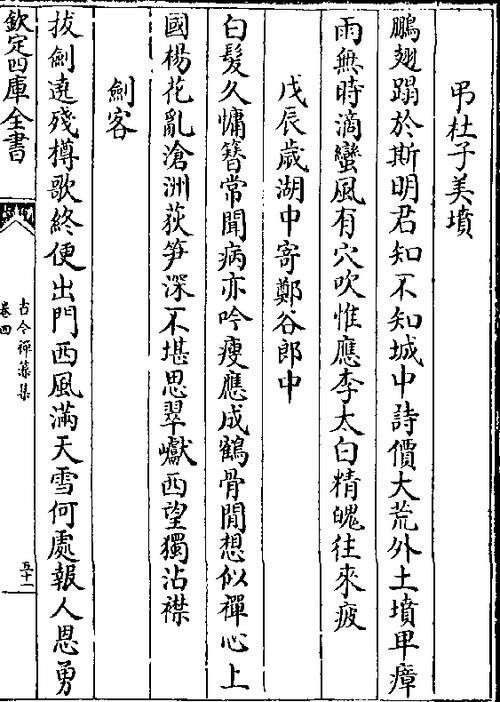 弔杜子美墳
鵬翅蹋於斯明君知不知城中詩價大荒外土墳卑瘴
雨無時滴蠻風有穴吹惟應李太白精魄往來疲
戊辰歲湖中寄鄭谷郎中
白髮久慵簪常聞病亦吟瘦應成鶴骨閒想似禪心上
國楊花亂滄洲荻笋深不堪思翠巘西望獨沾襟
劍客
拔劍遶殘樽歌終便出門西風滿天雪何處報人恩勇
欽定四庫全書
古今禪藻集
卷四
五十一